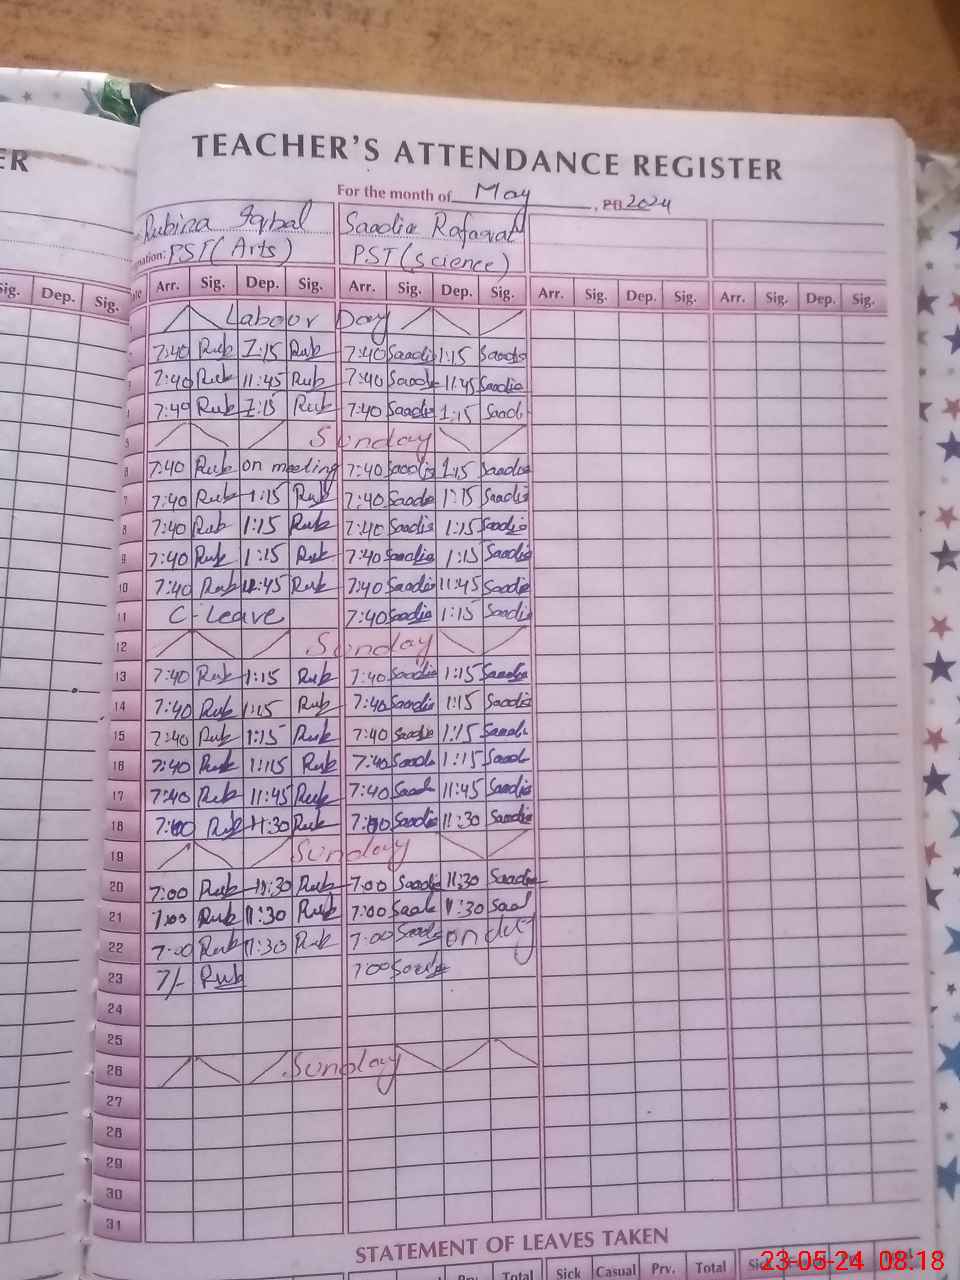 ER
TEACHER'S ATTENDANCE REGISTER
For the month of May , 2024
Rubina Iqbal Saadia Rafaqat
nation: PST (Arts) PST (Science)
Sig. Dep. Sig.
Arr. Sig. Dep. Sig. Arr. Sig. Dep. Sig. Arr. Sig. Dep. Sig. Arr. Sig. Dep. Sig.
Labour Day
7:40 Rub 1:15 Rub 7:40 Saadia 1:15 Saadia
7:40 Rub 11:45 Rub 7:40 Saadia 11:45 Saadia
7:40 Rub 1:15 Rub 7:40 Saadia 1:15 Saadi
5 Sunday
6 7:40 Rub on meeting 7:40 Saadia 1:15 Saadia
7 7:40 Rub 1:15 Rub 7:40 Saadia 1:15 Saadia
8 7:40 Rub 1:15 Rub 7:40 Saadia 1:15 Saadia
9 7:40 Rub 1:15 Rub 7:40 Saadia 1:15 Saadia
10 7:40 Rub 11:45 Rub 7:40 Saadia 11:45 Saadia
11 C-Leave 7:40 Saadia 1:15 Saadia
12 Sunday
13 7:40 Rub 1:15 Rub 7:40 Saadia 1:15 Saadia
14 7:40 Rub 1:15 Rub 7:40 Saadia 1:15 Saadia
15 7:40 Rub 1:15 Rub 7:40 Saadia 1:15 Saadi
16 7:40 Rub 1:15 Rub 7:40 Saadi 1:15 Saadi
17 7:40 Rub 11:45 Rub 7:40 Saadi 11:45 Saadia
18 7:00 Rub 11:30 Rub 7:00 Saadia 11:30 Saadia
19 Sunday
20 7:00 Rub 11:30 Rub 7:00 Saadia 11:30 Saadia
21 7:00 Rub 11:30 Rub 7:00 Saadi 11:30 Saad
22 7:00 Rub 11:30 Rub 7:00 Saadia on duty
23 7/- Rub 7:00 Saadia
24
25
26 Sunday
27
28
29
30
31
STATEMENT OF LEAVES TAKEN
Total Sick Casual Prv. Total
23-05-24 08:18